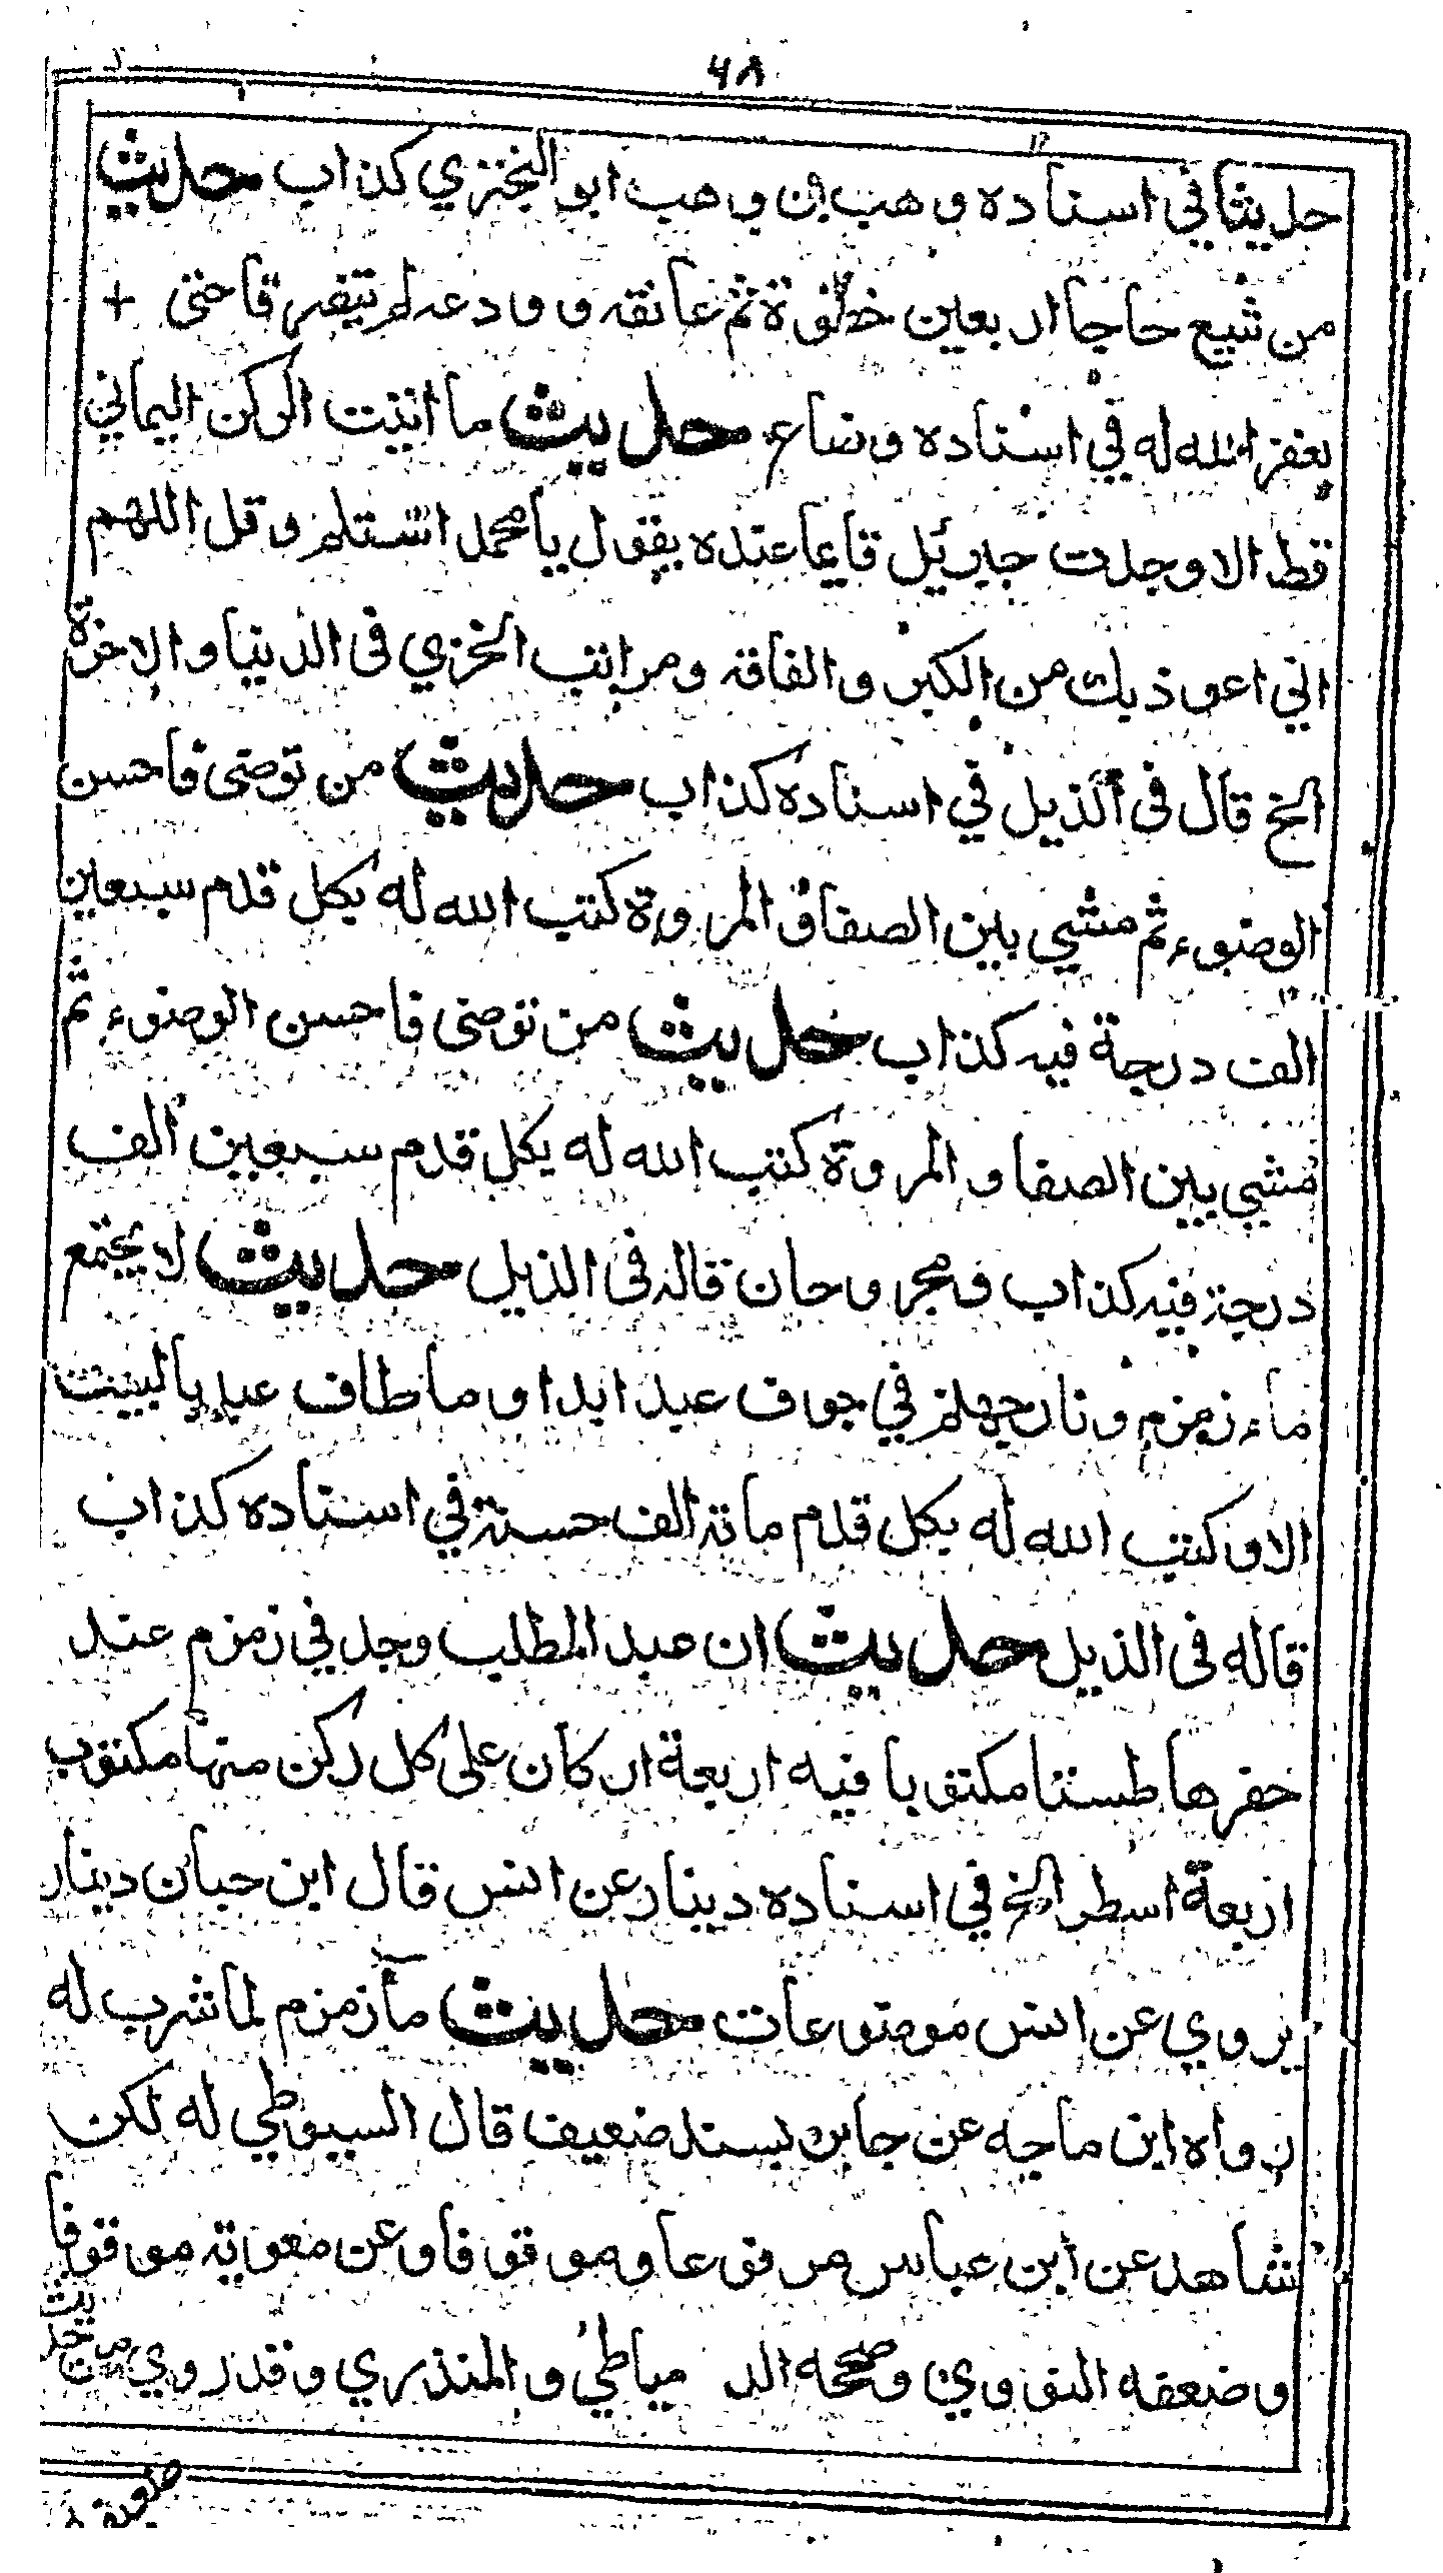 ٤٨
حديثا في اسناده وهب بن وهب ابو البختري كذاب حديث
من شيع حاجا اربعين خطوة ثم عانقه وودعه لم يتفرقا حتى
يغفر الله له في اسناده وضاع حديث ما اتيت الركن اليماني
قط الا وجدت جبرئيل قايما عنده يقول يا محمد استلم وقل اللهم
اني اعوذ بك من الكبر والفاقه ومراتب الخزي في الدنيا والاخرة
الخ قال في الذيل في اسناده كذاب حديث من توضى فاحسن
الوضوء ثم مشي بين الصفا والمروة كتب الله له بكل قدم سبعين
الف درجة فيه كذاب حديث من توضى فاحسن الوضوء ثم
مشي بين الصفا والمروة كتب الله له بكل قدم سبعين الف
درجة فيه كذاب ومجروحان قاله في الذيل حديث لا يجتمع
ماء زمزم ونار جهنم في جوف عبد ابدا وما طاف عبد بالبيت
الا وكتب الله له بكل قدم مائة الف حسنة في اسناده كذاب
قاله في الذيل حديث ان عبد المطلب وجد في زمزم عند
حفرها طستا مكتوبا فيه اربعة اركان على كل ركن منها مكتوب
اربعة اسطر الخ في اسناده دينار عن انس قال ابن حبان دينار
يروي عن انس موضوعات حديث مآ زمزم لما شرب له
رواه ابن ماجه عن جابر بسند ضعيف قال السيوطي له لكن
شاهد عن ابن عباس مرفوعا وموقوفا وعن معوية موقوفا
وضعفه النووي وصححه الدمياطي والمنذري وقد روي من حديث